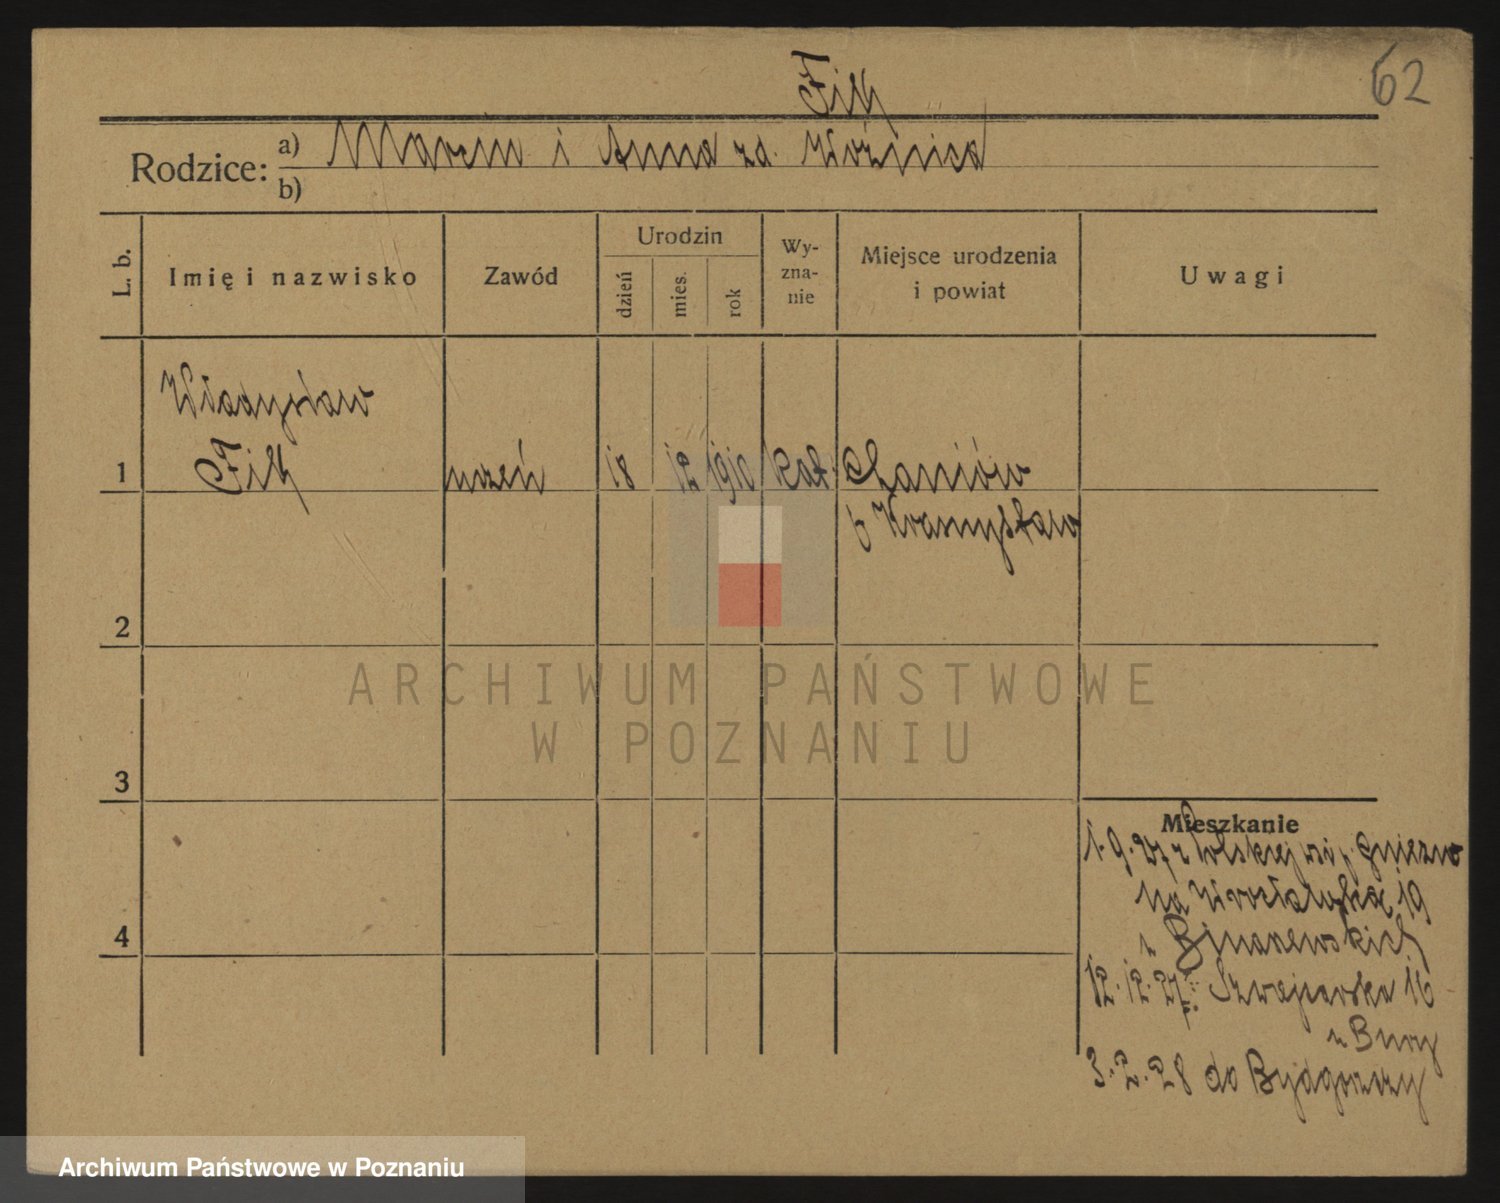 62
Filk
Rodzice: a) Marcin i Anna zd. Woźnica
b)
L. b. Imię i nazwisko Zawód Urodzin dzień mies. rok Wy-zna-nie Miejsce urodzenia i powiat Uwagi
Władysław
1 Filk uczeń 18 12 1910 kat.
Krasnystaw
2
3
4
Mieszkanie
1.9.27 z Polskiej wsi, p. Gniezno
na Wrocławską 19
12.12.27: Szwajcarska 16
u Bury
3.2.28 do Bydgoszczy
ARCHIWUM PAŃSTWOWE
W POZNANIU
Archiwum Państwowe w Poznaniu